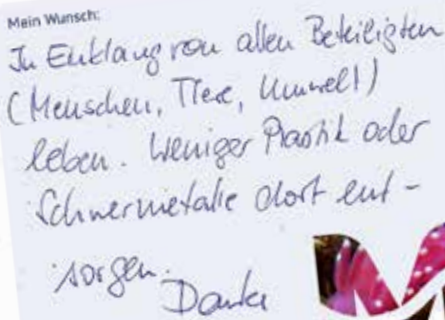 Mein Wunsch:
In Einklang von allen Beteiligten
(Menschen, Tiere, Umwelt)
leben. Weniger Plastik oder
Schwermetalle dort ent-
sorgen.
Danke